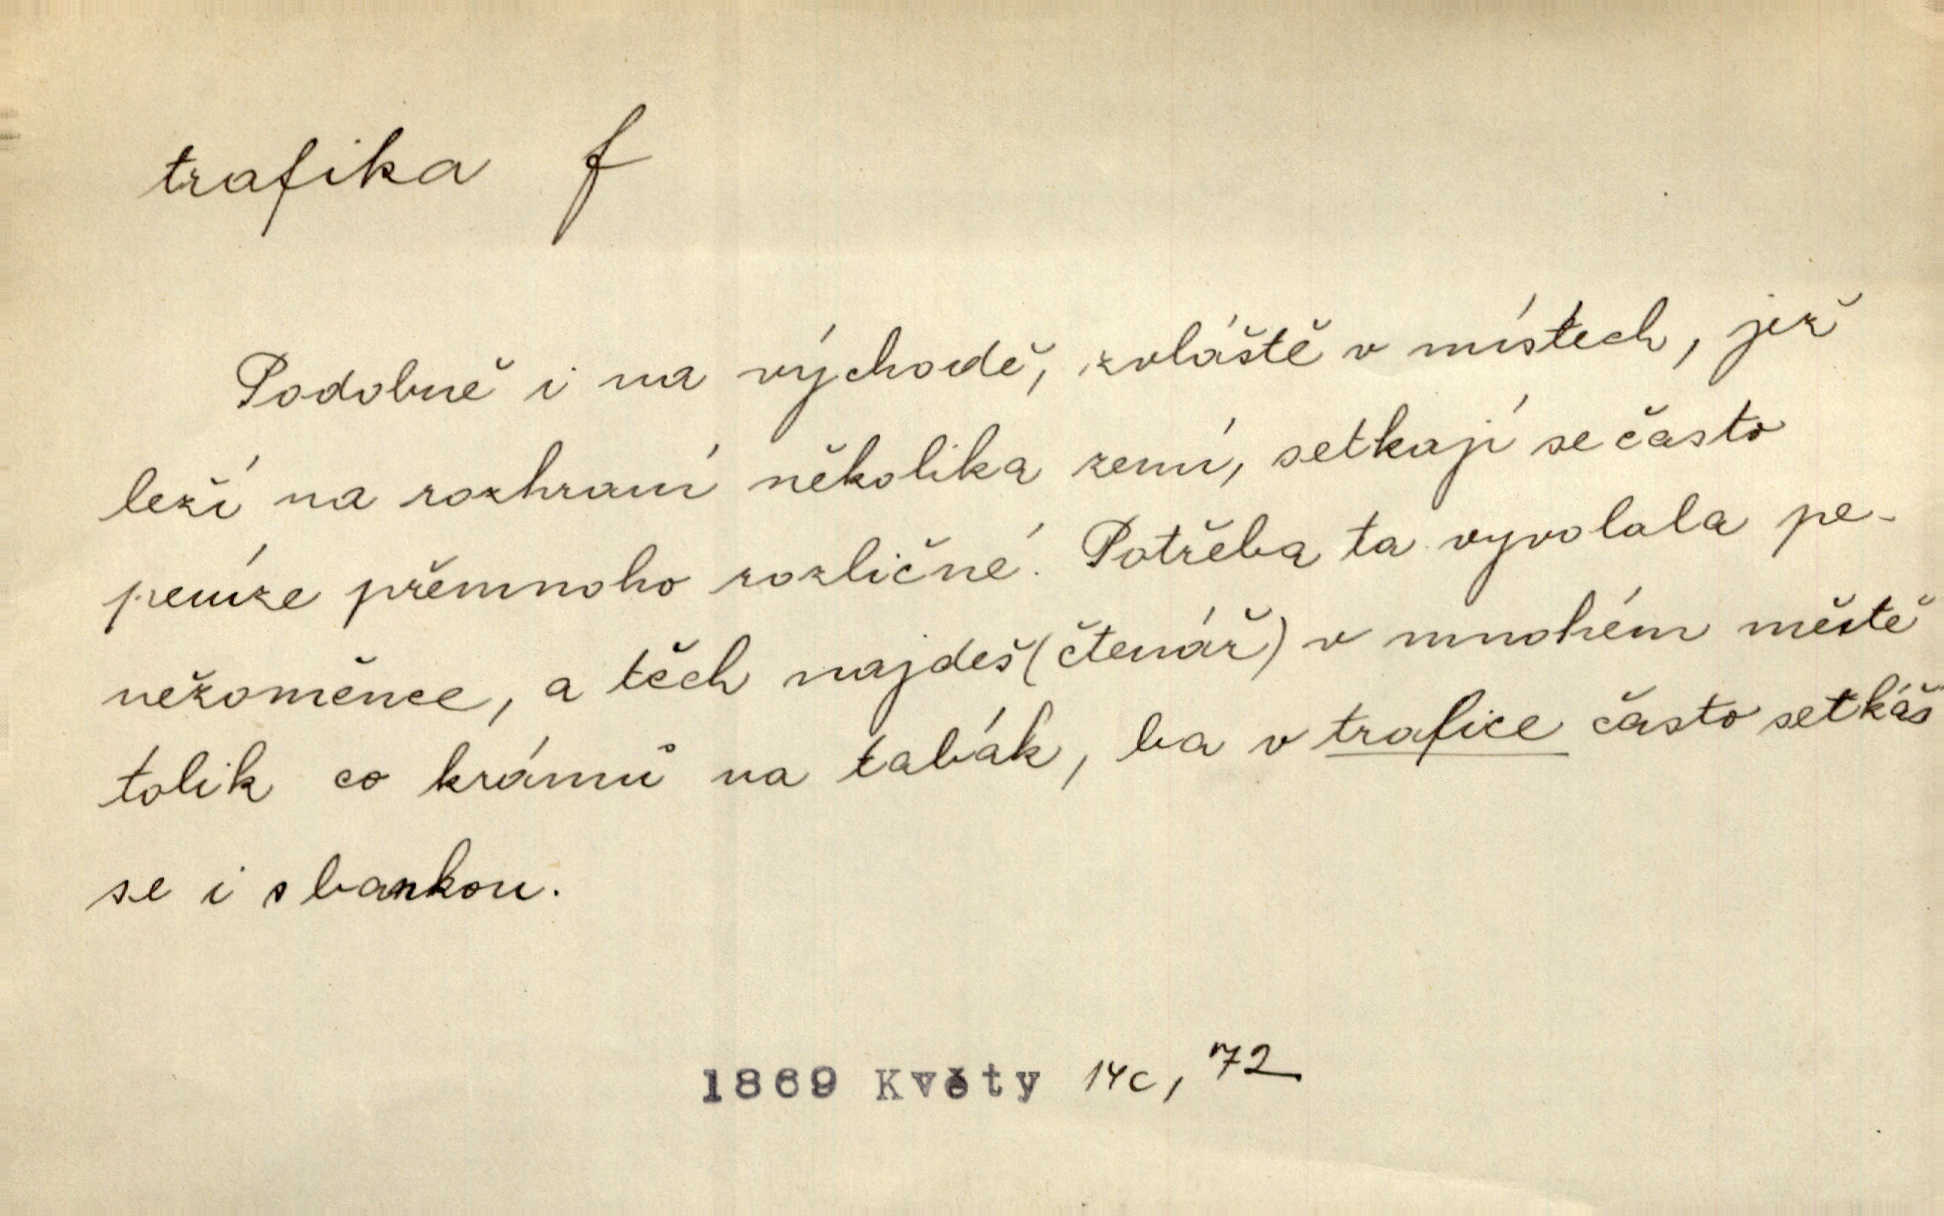 trafika f
Podobně i na východě, zvláště v místech, jež
leží na rozhraní několika zemí, setkají se často
peníze přemnoho rozličné. Potřeba ta vyvolala pe-
nězoměnce, a těch najdeš (čtenář) v mnohém městě
tolik co krámů na tabák, ba v trafice často setkáš
se i s bankou.
1869 Květy 14c, 72